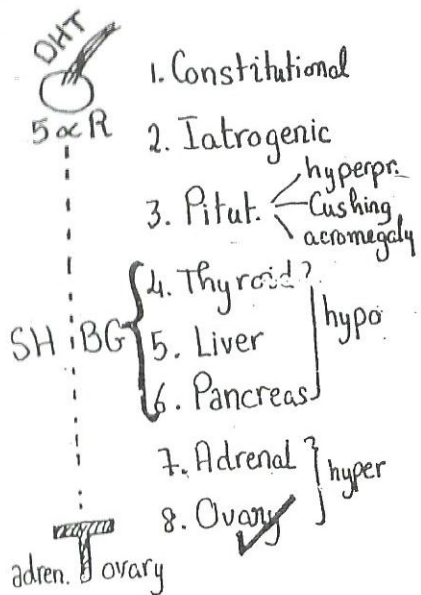 DHT
5αR
SHBG
adren. T ovary
1. Constitutional
2. Iatrogenic
3. Pitut.
hyperpr.
Cushing
acromegaly
4. Thyroid?
5. Liver
6. Pancreas
hypo
7. Adrenal
8. Ovary
hyper